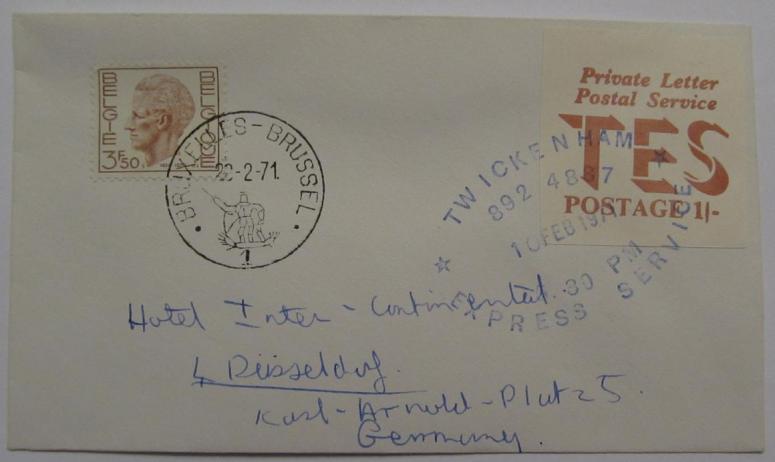 BELGIE BELGIQUE
3F50
BRUXELLES-BRUSSEL
-2-71
1
Private Letter
Postal Service
TES
POSTAGE 1/-
TWICKENHAM
892 4887
10 FEB 197
30 PM
PRESS SERVICE
Hotel Inter-Continental.
4 Düsseldorf.
Karl-Arnold-Platz 5.
Germany.